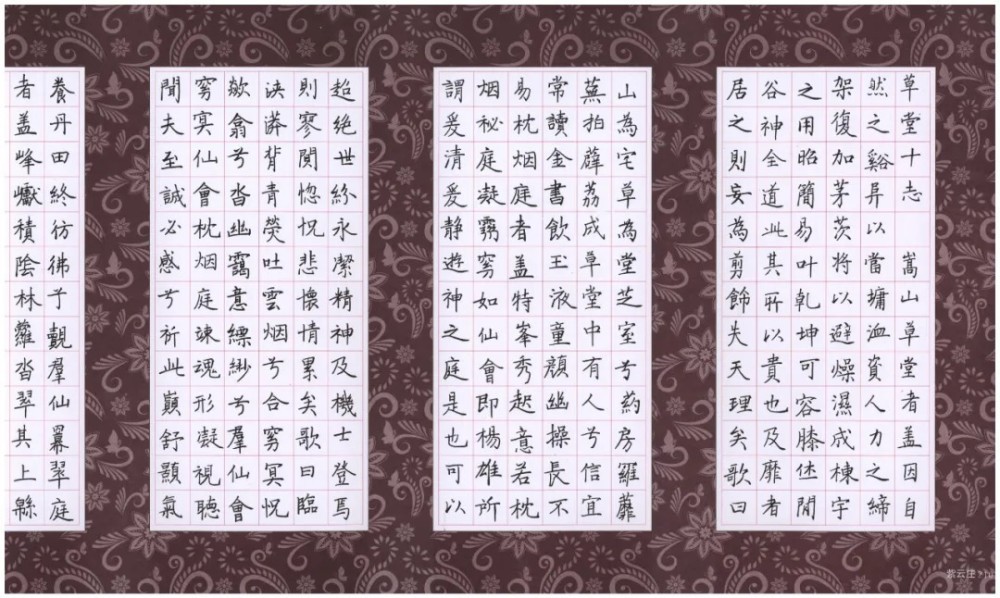 草堂十志　嵩山草堂者盖因自
然之谿异以當墉洫資人力之締
架復加茅茨将以避燥濕成棟宇
之用昭簡易叶乾坤可容膝休閒
谷神全道此其所以貴也及靡者
居之則妄為剪飾失天理矣歌曰
山為宅草為堂芝室兮葯房羅蘼
蕪拍薜荔成草堂中有人兮信宜
常讀金書飲玉液童顔幽操長不
易枕烟庭者盖特峯秀起意若枕
烟秘庭凝霧窅如仙會即楊雄所
謂爰清爰静遊神之庭是也可以
超绝世紛永潔精神及機士登焉
則寥閴惚怳悲懷情累矣歌曰臨
泱漭背青熒吐雲烟兮合窅冥怳
欻翕兮沓幽靄意縹緲兮羣仙會
窅冥仙會枕烟庭竦魂形凝視聽
聞夫至誠必感兮祈此巔舒顥氣
養丹田終彷彿于觀羣仙羃翠庭
者盖峰巘積陰林蘿沓翠其上緜